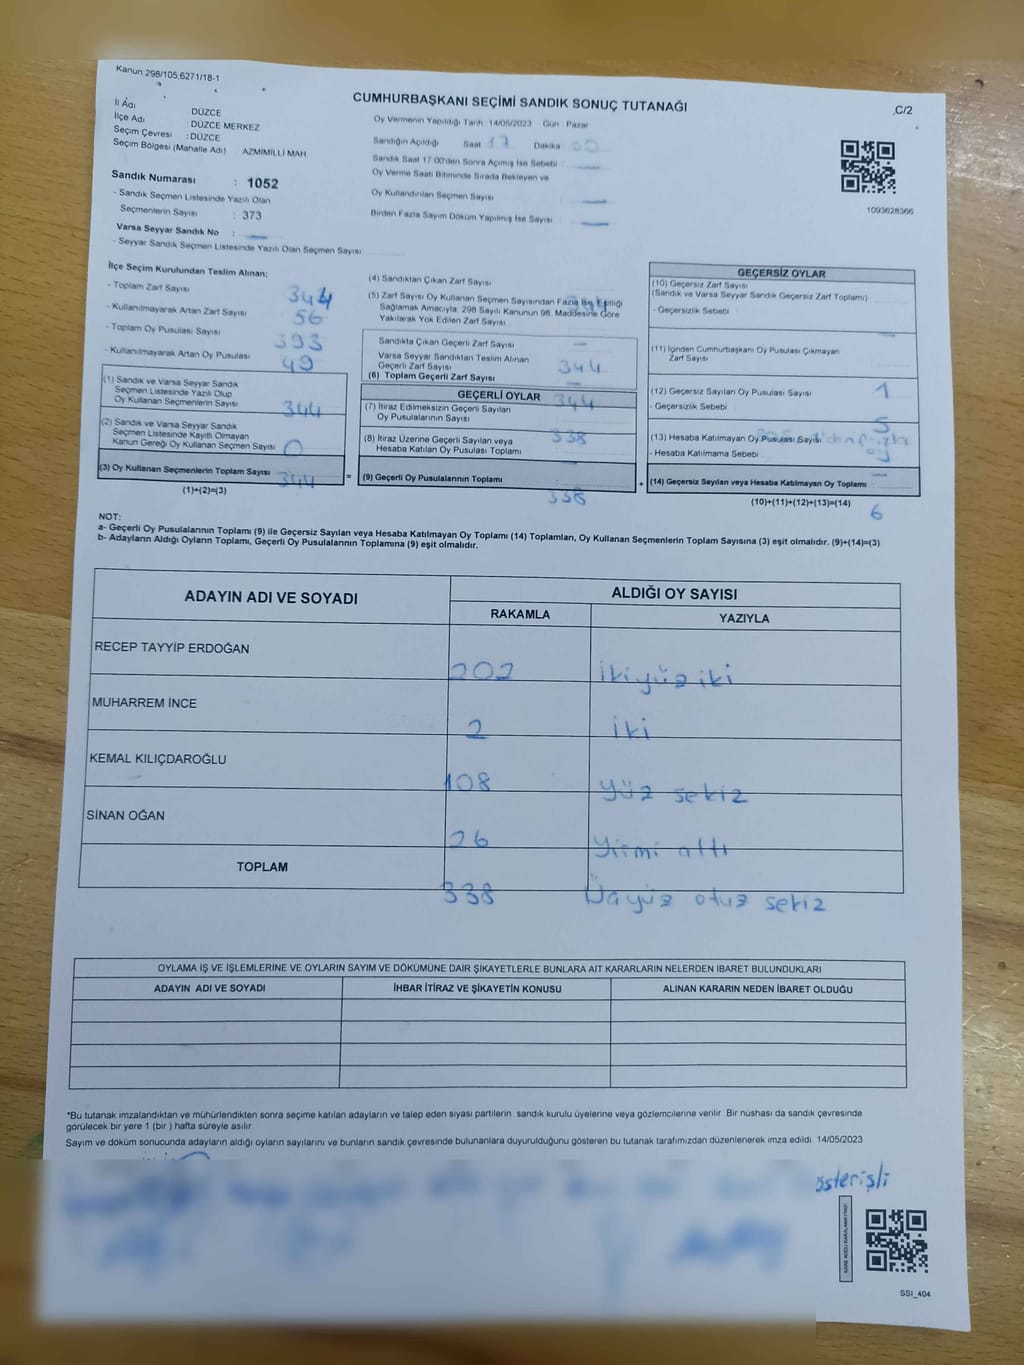 Kanun,298/105,6271/18-1
C/2
CUMHURBAŞKANI SEÇİMİ SANDIK SONUÇ TUTANAĞI
İl Adı DÜZCE
İlçe Adı : DÜZCE MERKEZ
Seçim Çevresi : DÜZCE
Seçim Bölgesi (Mahalle Adı) AZMİMİLLİ MAH
Sandık Numarası : 1052
- Sandık Seçmen Listesinde Yazılı Olan
Seçmenlerin Sayısı : 373
Varsa Seyyar Sandık No :
- Seyyar Sandık Seçmen Listesinde Yazılı Olan Seçmen Sayısı
Oy Vermenin Yapıldığı Tarih :14/05/2023 Gün : Pazar
Sandığın Açıldığı Saat 17 Dakika 00
Sandık Saat 17:00'den Sonra Açılmış İse Sebebi
Oy Verme Saati Bitiminde Sırada Bekleyen ve
Oy Kullandırılan Seçmen Sayısı
Birden Fazla Sayım Döküm Yapılmış İse Sayısı
1093628366
İlçe Seçim Kurulundan Teslim Alınan;
- Toplam Zarf Sayısı
- Kullanılmayarak Artan Zarf Sayısı 56
- Toplam Oy Pusulası Sayısı 393
- Kullanılmayarak Artan Oy Pusulası 49
(1) Sandık ve Varsa Seyyar Sandık
Seçmen Listesinde Yazılı Olup
Oy Kullanan Seçmenlerin Sayısı 344
(2) Sandık ve Varsa Seyyar Sandık
Seçmen Listesinde Kayıtlı Olmayan
Kanun Gereği Oy Kullanan Seçmen Sayısı 0
(3) Oy Kullanan Seçmenlerin Toplam Sayısı 344
(1)+(2)=(3)
(4) Sandıktan Çıkan Zarf Sayısı
(5) Zarf Sayısı Oy Kullanan Seçmen Sayısından Fazla İse, Eşitliği
Sağlamak Amacıyla, 298 Sayılı Kanunun 98. Maddesine Göre
Yakılarak Yok Edilen Zarf Sayısı
Sandıkta Çıkan Geçerli Zarf Sayısı
Varsa Seyyar Sandıktan Teslim Alınan
Geçerli Zarf Sayısı 344
(6) Toplam Geçerli Zarf Sayısı
GEÇERLİ OYLAR 344
(7) İtiraz Edilmeksizin Geçerli Sayılan
Oy Pusulalarının Sayısı
(8) İtiraz Üzerine Geçerli Sayılan veya 338
Hesaba Katılan Oy Pusulası Toplamı
= (9) Geçerli Oy Pusulalarının Toplamı
338
GEÇERSİZ OYLAR
(10) Geçersiz Zarf Sayısı
(Sandık ve Varsa Seyyar Sandık Geçersiz Zarf Toplamı)
- Geçersizlik Sebebi
(11) İçinden Cumhurbaşkanı Oy Pusulası Çıkmayan
Zarf Sayısı
(12) Geçersiz Sayılan Oy Pusulası Sayısı 1
- Geçersizlik Sebebi 5
(13) Hesaba Katılmayan Oy Pusulası Sayısı
- Hesaba Katılmama Sebebi
+ (14) Geçersiz Sayılan veya Hesaba Katılmayan Oy Toplamı
(10)+(11)+(12)+(13)=(14) 6
NOT:
a- Geçerli Oy Pusulalarının Toplamı (9) ile Geçersiz Sayılan veya Hesaba Katılmayan Oy Toplamı (14) Toplamları, Oy Kullanan Seçmenlerin Toplam Sayısına (3) eşit olmalıdır. (9)+(14)=(3)
b- Adayların Aldığı Oyların Toplamı, Geçerli Oy Pusulalarının Toplamına (9) eşit olmalıdır.
ADAYIN ADI VE SOYADI ALDIĞI OY SAYISI
RAKAMLA YAZIYLA
RECEP TAYYİP ERDOĞAN 202 ikiyüz iki
MUHARREM İNCE 2 iki
KEMAL KILIÇDAROĞLU 108 yüz sekiz
SİNAN OĞAN 26 yirmi altı
TOPLAM 338 Üçyüz otuz sekiz
OYLAMA İŞ VE İŞLEMLERİNE VE OYLARIN SAYIM VE DÖKÜMÜNE DAİR ŞİKAYETLERLE BUNLARA AİT KARARLARIN NELERDEN İBARET BULUNDUKLARI
ADAYIN ADI VE SOYADI İHBAR İTİRAZ VE ŞİKAYETİN KONUSU ALINAN KARARIN NEDEN İBARET OLDUĞU
*Bu tutanak imzalandıktan ve mühürlendikten sonra seçime katılan adayların ve talep eden siyasi partilerin sandık kurulu üyelerine veya gözlemcilerine verilir. Bir nüshası da sandık çevresinde
görülecek bir yere 1 (bir ) hafta süreyle asılır.
Sayım ve döküm sonucunda adayların aldığı oyların sayılarını ve bunların sandık çevresinde bulunanlara duyurulduğunu gösteren bu tutanak tarafımızdan düzenlenerek imza edildi. 14/05/2023
österişli
KARE KODU KARALAMAYINIZ!
SSI_404